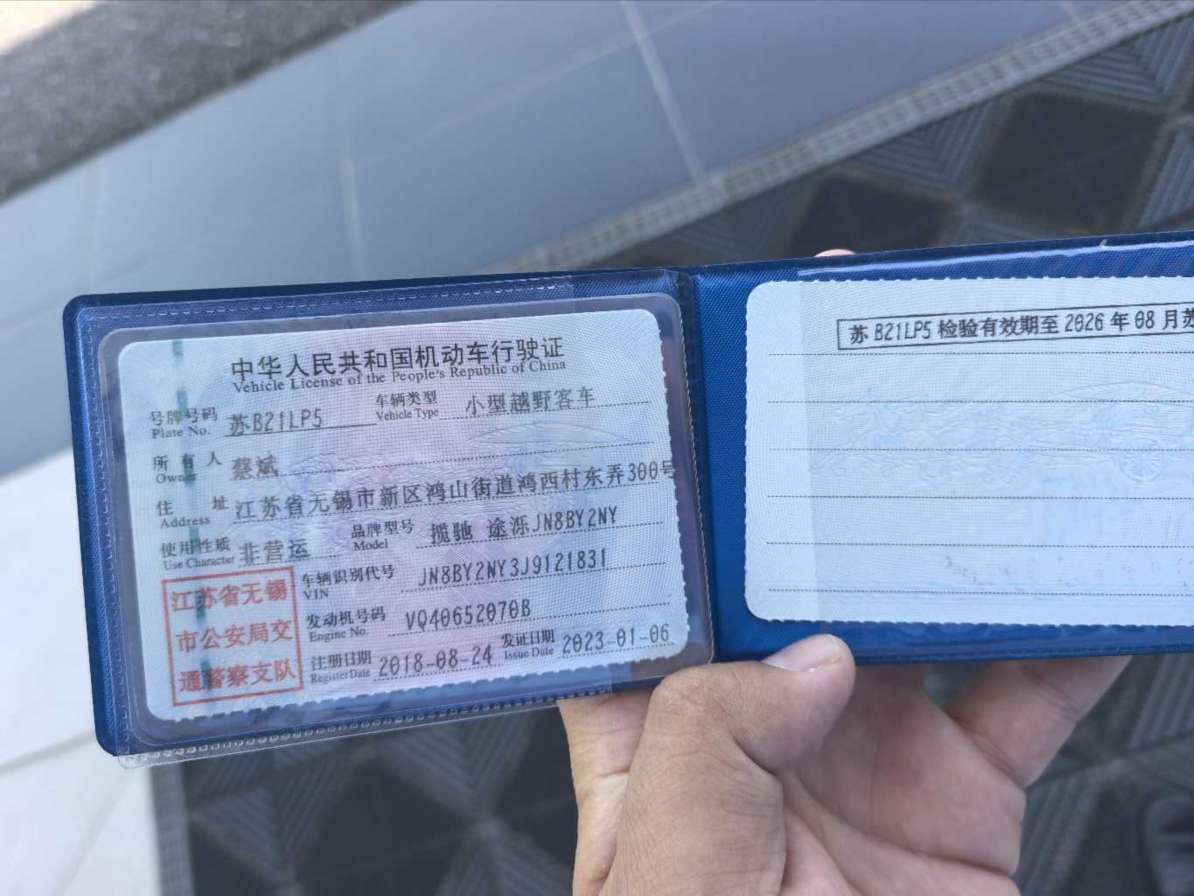 中华人民共和国机动车行驶证
Vehicle License of the People's Republic of China
号牌号码 Plate No. 苏B21LP5 车辆类型 Vehicle Type 小型越野客车
所有人 Owner 蔡斌
住址 Address 江苏省无锡市新区鸿山街道鸿西村东弄300号
使用性质 Use Character 非营运 品牌型号 Model 揽驰 途泺JN8BY2NY
车辆识别代号 VIN JN8BY2NY3J9121831
发动机号码 Engine No. VQ40652070B
注册日期 Register Date 2018-08-24 发证日期 Issue Date 2023-01-06
江苏省无锡
市公安局交
通警察支队
苏 B21LP5 检验有效期至 2026 年 08 月 苏